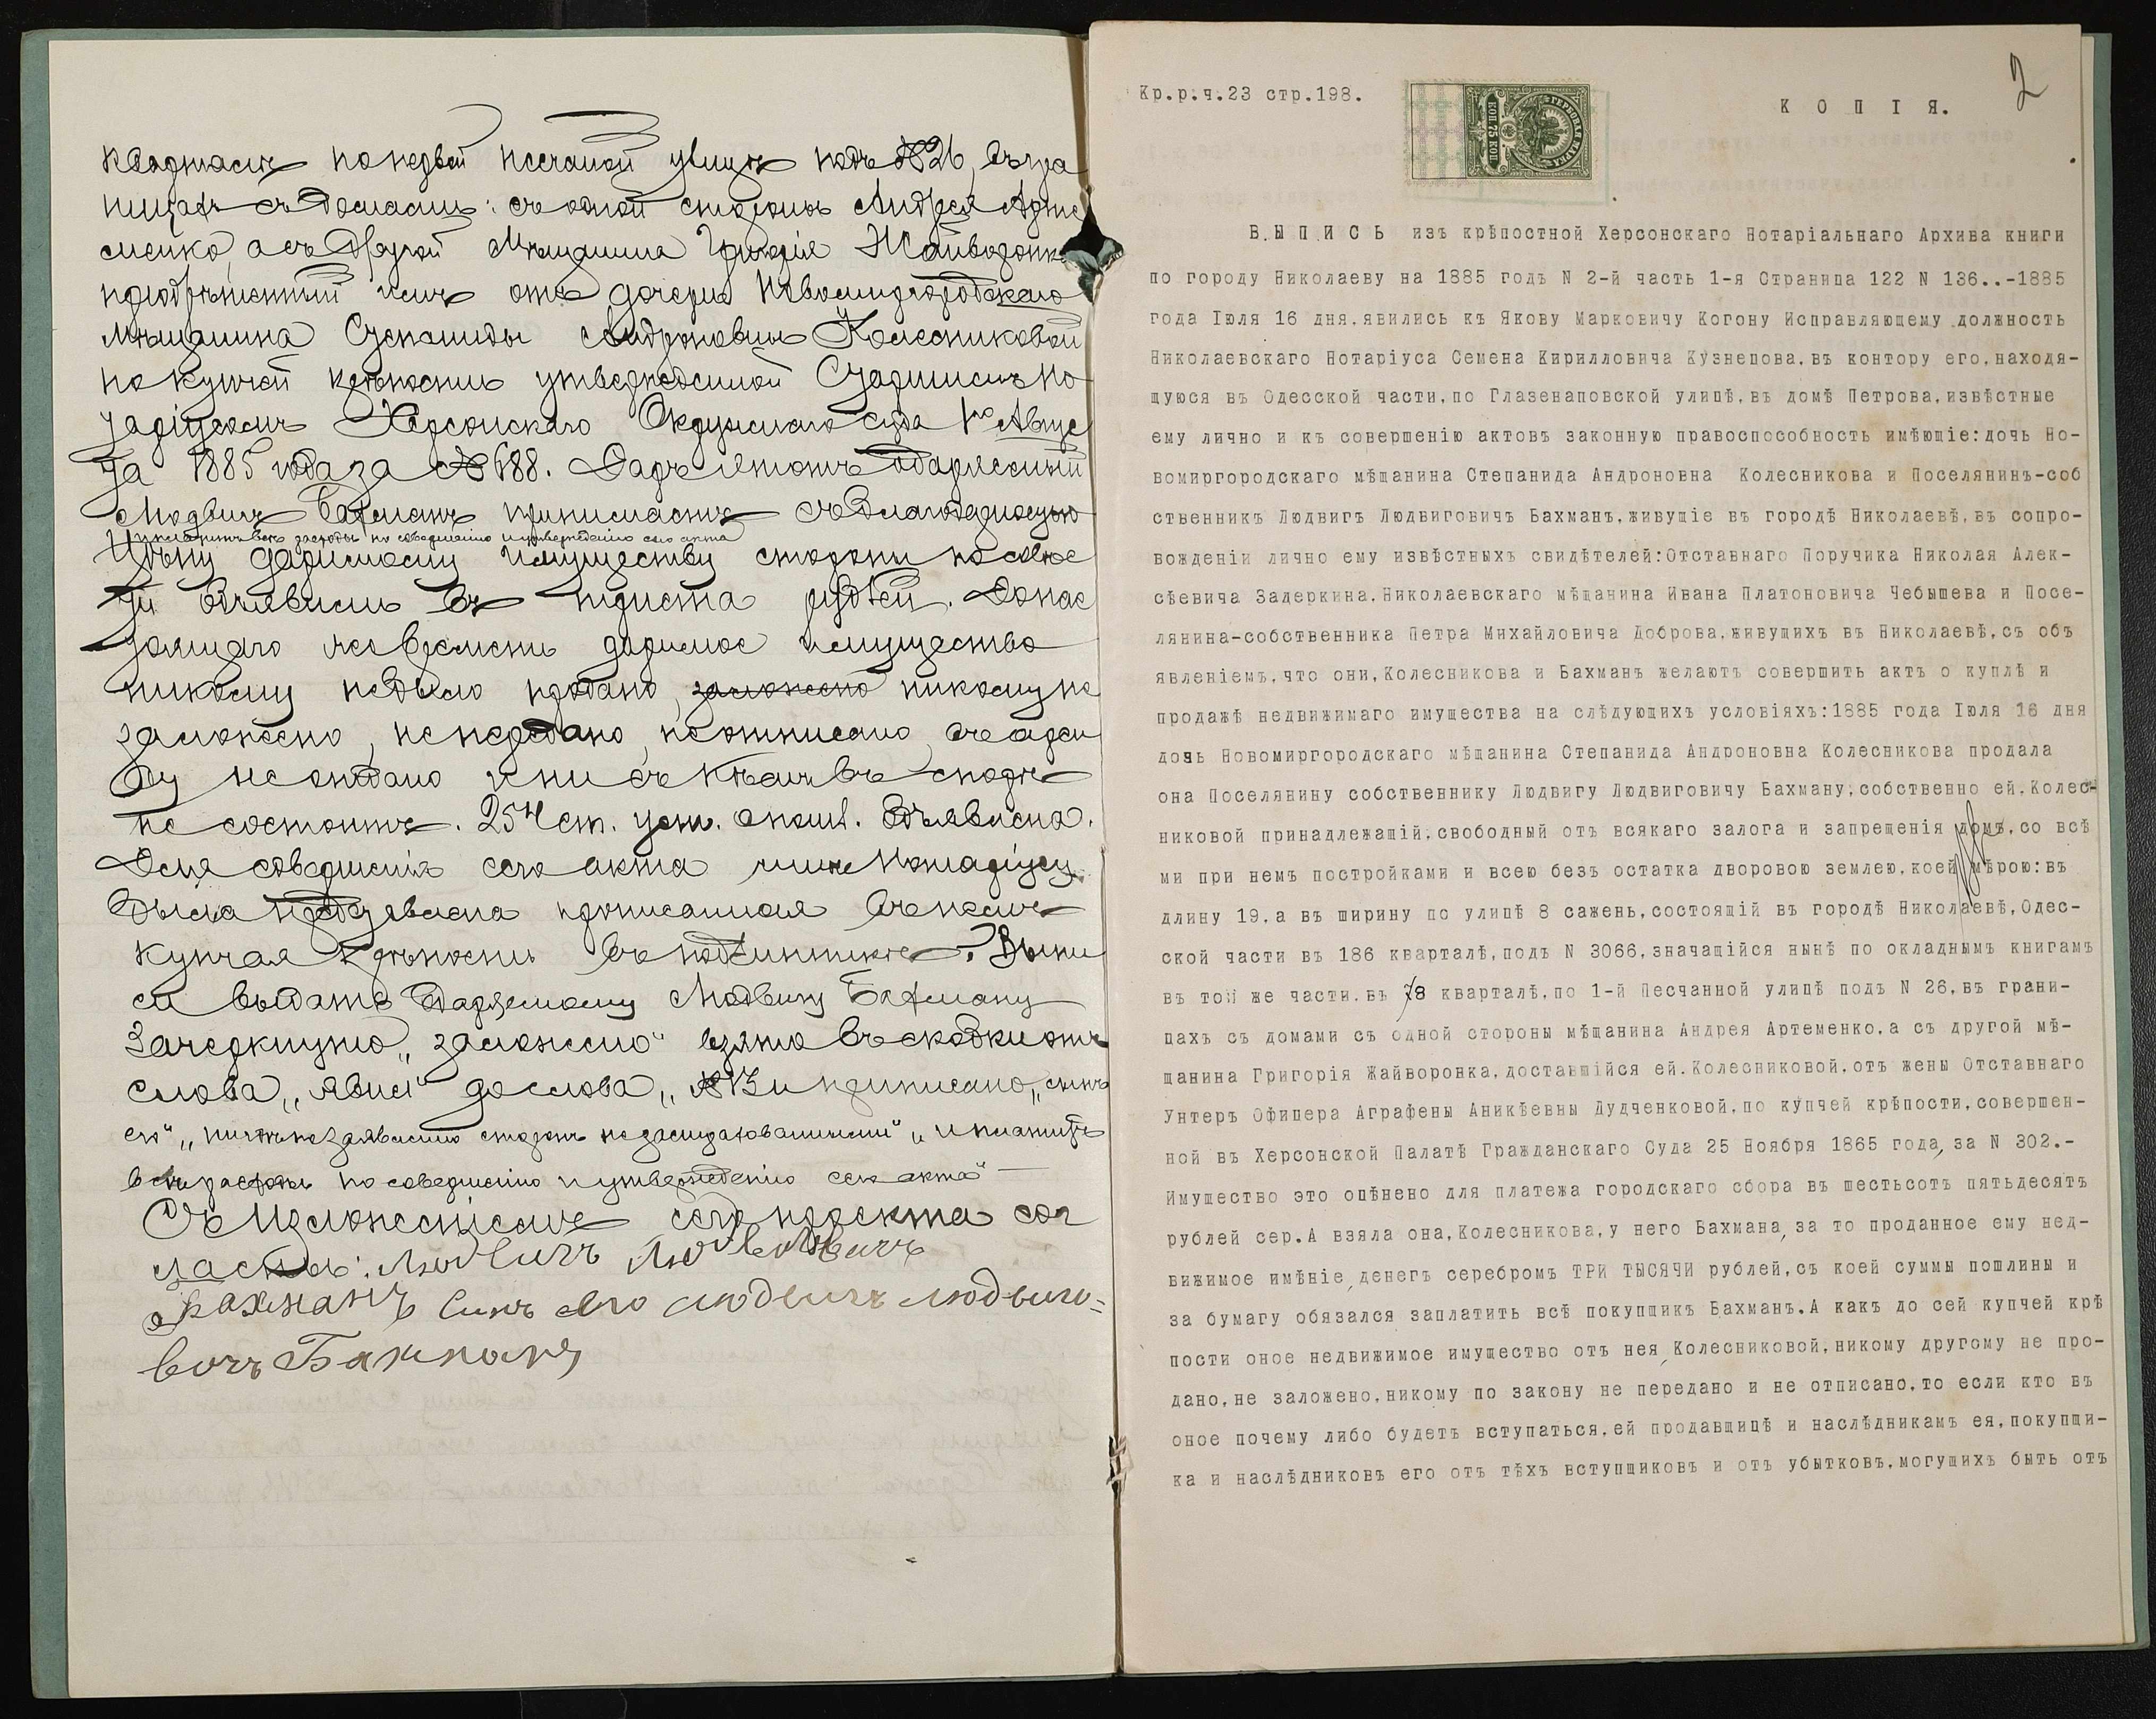 кварталѣ по первой песчаной улицѣ подъ № 26, въ гра
ницахъ съ домами: съ одной стороны Андрея Арте
менко, а съ другой Мѣщанина Григорія Жайворонка
пріобрѣтенный имъ отъ дочери Новомиргородскаго
мѣщанина Степаниды Андроновны Колесниковой
по купчей крѣпости утвержденной Старшимъ Но
таріусомъ Херсонскаго Окружнаго суда 1го Авгус
та 1885 года за № 688. Даръ этотъ одаряемый
Людвигъ Бахманъ принимаетъ съ благодарностью
и платитъ всѣ расходы по совершенію и утвержденію сего акта
Цѣну даримому имуществу стороны по совѣс
ти объявили въ триста рублей. До нас
тоящаго же времени даримое имущество
никому не было продано, заложено никому не
заложено, не передано, не отписано, въ арен
ду не отдано и ни съ кѣмъ въ спорѣ
не состоитъ. 254 ст. уст. о пошл. объявлена.
Для совершенія сего акта мнѣ Нотаріусу
была предъявлена прописанная въ немъ
купчая крѣпость въ подлинникѣ. Выпи
сь выдать Одаряемому Людвигу Бахману
Зачеркнуто „заложено“ взято въ скобки отъ
слова „явил“ до слова „№ 13 и приписано „сынъ
его“ „ничѣмъ по заявленію сторонъ не застрахованными“ „и платитъ
всѣ расходы по совершенію и утвержденію сего акта“
Съ изложеніемъ сего проекта сог
ласны: Людвигъ Людвиговичъ
Бахманъ сынъ его Людвигъ Людвиго=
вичъ Бахманъ
2
Кр.р.ч.23 стр.198.
К О П І Я.
ГЕРБОВАЯ МАРКА
КОП 75 КОП
В Ы П И С Ь изъ крѣпостной Херсонскаго Нотаріальнаго Архива книги
по городу Николаеву на 1885 годъ N 2-й часть 1-я Страница 122 N 136..-1885
года Іюля 16 дня.явились къ Якову Марковичу Когону Исправляющему должность
Николаевскаго Нотаріуса Семена Кирилловича Кузнецова.въ контору его,находя-
щуюся въ Одесской части,по Глазенаповской улицѣ,въ домѣ Петрова,извѣстные
ему лично и къ совершенію актовъ законную правоспособность имѣющіе:дочь Но-
вомиргородскаго мѣщанина Степанида Андроновна Колесникова и Поселянинъ-соб
ственникъ Людвигъ Людвиговичъ Бахманъ,живущіе въ городѣ Николаевѣ,въ сопро-
вожденіи лично ему извѣстныхъ свидѣтелей:Отставнаго Поручика Николая Алек-
сѣевича Задеркина,Николаевскаго мѣщанина Ивана Платоновича Чебышева и Посе-
лянина-собственника Петра Михайловича Доброва,живущихъ въ Николаевѣ,съ объ
явленіемъ,что они,Колесникова и Бахманъ желаютъ совершить актъ о куплѣ и
продажѣ недвижимаго имущества на слѣдующихъ условіяхъ:1885 года Іюля 16 дня
дочь Новомиргородскаго мѣщанина Степанида Андроновна Колесникова продала
она Поселянину собственнику Людвигу Людвиговичу Бахману,собственно ей,Колес-
никовой принадлежащій,свободный отъ всякаго залога и запрещенія домъ,со всѣ
ми при немъ постройками и всею безъ остатка дворовою землею,коей мѣрою:въ
длину 19,а въ ширину по улицѣ 8 сажень,состоящій въ городѣ Николаевѣ,Одес-
ской части въ 186 кварталѣ,подъ N 3066,значащійся нынѣ по окладнымъ книгамъ
въ той же части,въ 78 кварталѣ,по 1-й Песчанной улицѣ подъ N 26,въ грани-
цахъ съ домами съ одной стороны мѣщанина Андрея Артеменко,а съ другой мѣ-
щанина Григорія Жайворонка,доставшійся ей,Колесниковой,отъ жены Отставнаго
Унтеръ Офицера Аграфены Аникѣевны Дудченковой,по купчей крѣпости,совершен-
ной въ Херсонской Палатѣ Гражданскаго Суда 25 Ноября 1865 года,за N 302.-
Имущество это оцѣнено для платежа городскаго сбора въ шестьсотъ пятьдесятъ
рублей сер.А взяла она,Колесникова,у него Бахмана,за то проданное ему нед-
вижимое имѣніе,денегъ серебромъ ТРИ ТЫСЯЧИ рублей,съ коей суммы пошлины и
за бумагу обязался заплатить всѣ покупщикъ Бахманъ.А какъ до сей купчей крѣ
пости оное недвижимое имущество отъ нея,Колесниковой,никому другому не про-
дано,не заложено,никому по закону не передано и не отписано,то если кто въ
оное почему либо будетъ вступаться,ей продавщицѣ и наслѣдникамъ ея,покупщи-
ка и наслѣдниковъ его отъ тѣхъ вступщиковъ и отъ убытковъ,могущихъ быть отъ